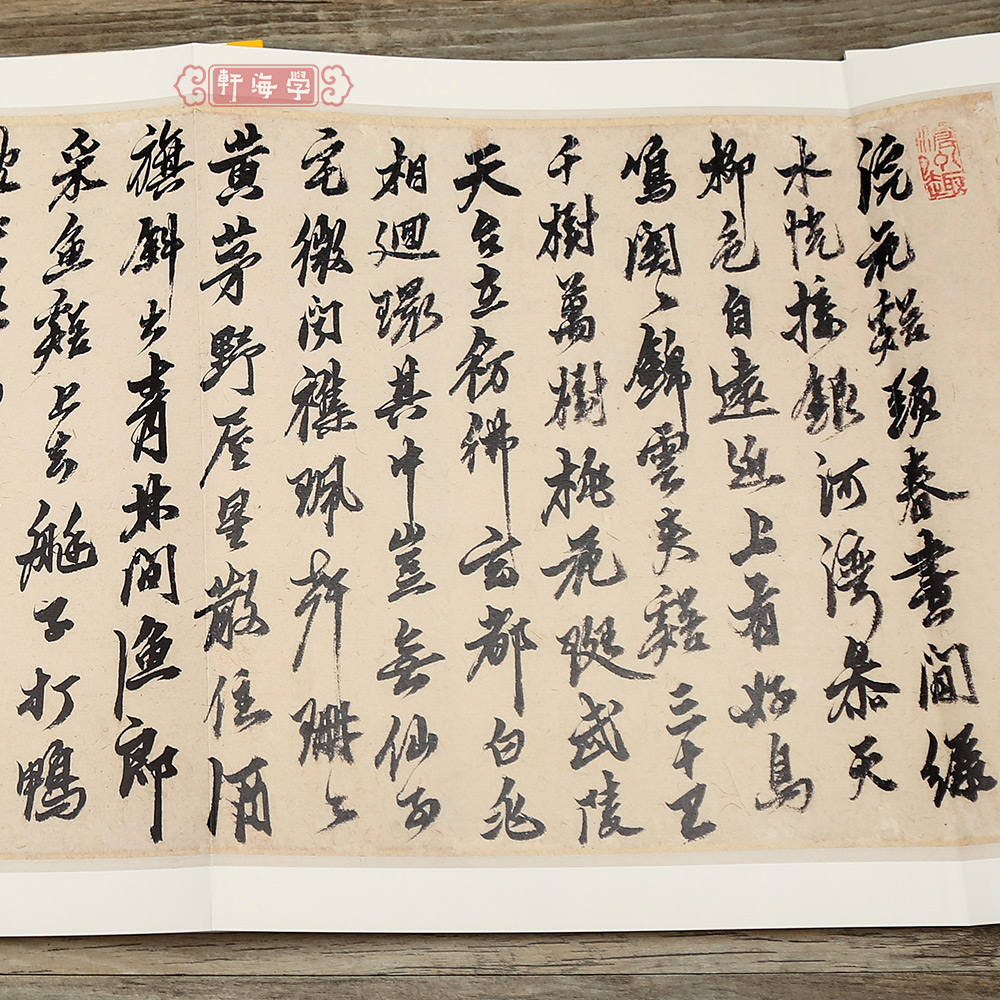 軒海學
浣花谿頭春晝閒綠
水恍接銀河灣幕天
柳色自遠近上有好鳥
鳴關〻錦雲夾谿三十里
千樹萬樹桃花 武陵
天台立彷彿玄都白兆
相迴環其中豈無仙
宅微聞襍珮聲珊〻
黃茅野屋星散住酒
旗斜出青林間漁郎
采魚谿上去艇子打鴨